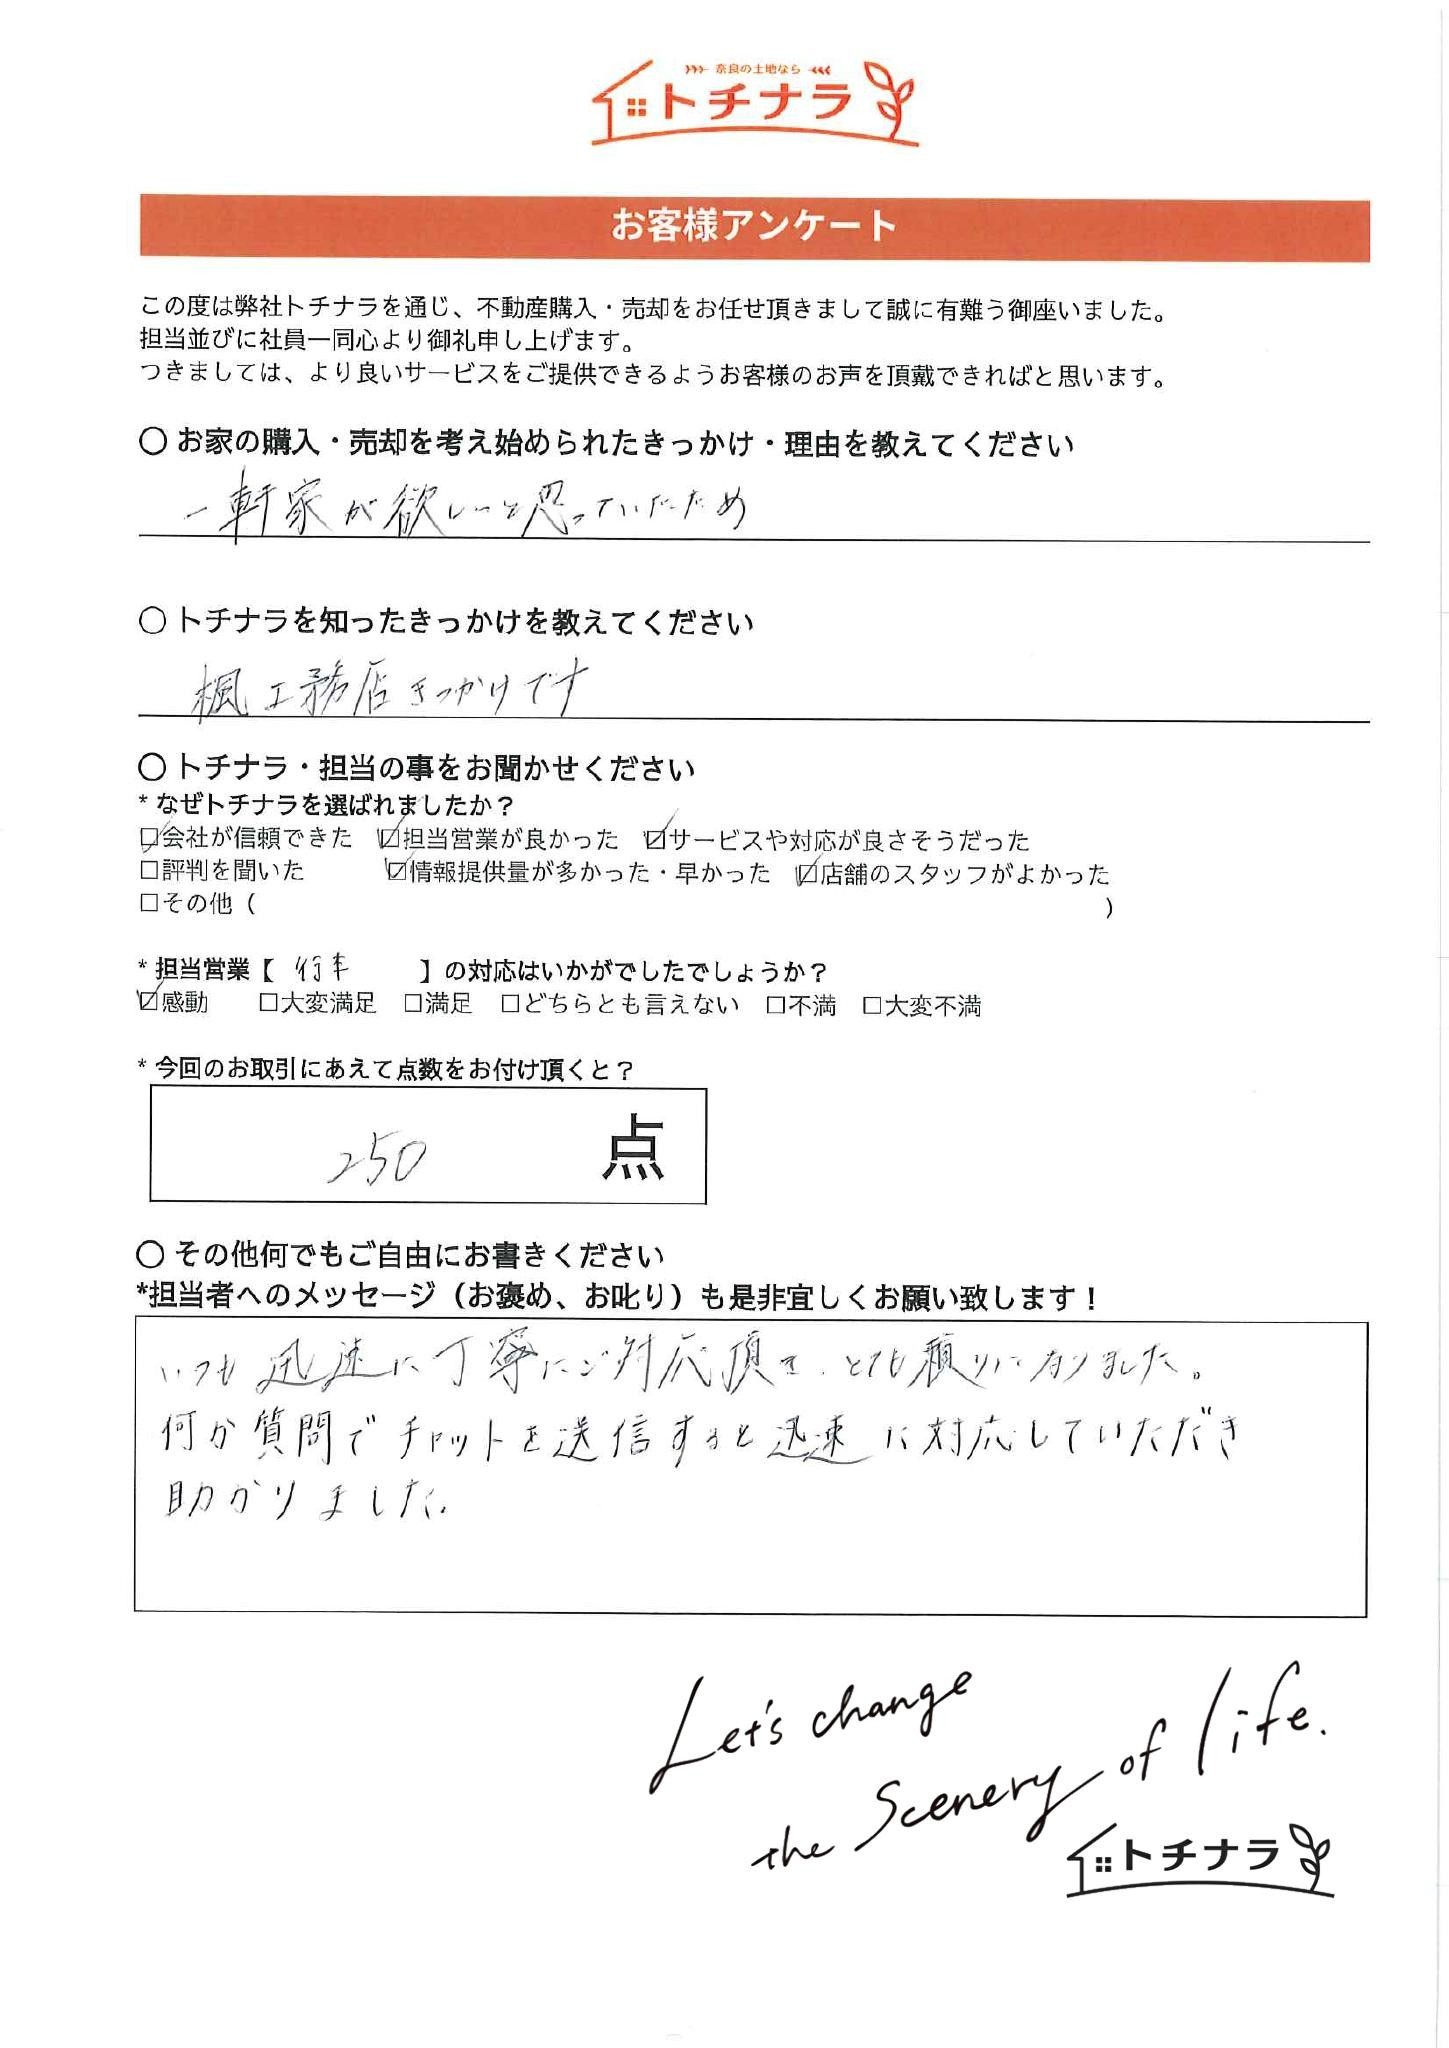 奈良の土地なら
トチナラ
お客様アンケート
この度は弊社トチナラを通じ、不動産購入・売却をお任せ頂きまして誠に有難う御座いました。
担当並びに社員一同心より御礼申し上げます。
つきましては、より良いサービスをご提供できるようお客様のお声を頂戴できればと思います。
○ お家の購入・売却を考え始められたきっかけ・理由を教えてください
一軒家が欲しいと思っていたため
○ トチナラを知ったきっかけを教えてください
楓工務店きっかけです
○ トチナラ・担当の事をお聞かせください
* なぜトチナラを選ばれましたか？
☑会社が信頼できた ☑担当営業が良かった ☑サービスや対応が良さそうだった
□評判を聞いた ☑情報提供量が多かった・早かった ☑店舗のスタッフがよかった
□その他（ ）
* 担当営業【 行本 】の対応はいかがでしたでしょうか？
☑感動 □大変満足 □満足 □どちらとも言えない □不満 □大変不満
* 今回のお取引にあえて点数をお付け頂くと？
250 点
○ その他何でもご自由にお書きください
*担当者へのメッセージ（お褒め、お叱り）も是非宜しくお願い致します！
いつも迅速に丁寧にご対応頂き、とても頼りになりました。
何か質問でチャットを送信すると迅速に対応していただき
助かりました。
Let's change
the Scenery of life.
トチナラ